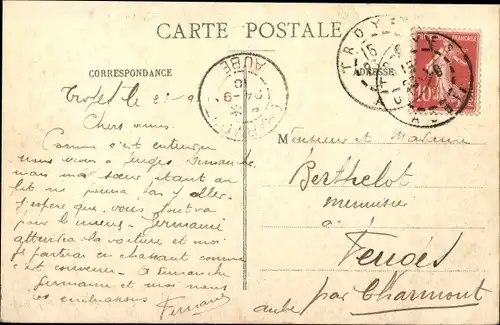 CARTE POSTALE
CORRESPONDANCE
ADRESSE
TROYES
AUBE
10
le 2
Chers amis.
Comme c'est entendu
nous à Feuges Dimanche
mais ma soeur étant au
lit ne pourra pas y aller.
J'espère que vous tout va
pour le mieux. Germaine
attendra la voiture et moi
je partirai en chassant comme
c'est convenu. A Dimanche
Germaine et moi nous
vos embrassons Fernand
Monsieur et Madame
Berthelot
menuisier
à
Feuges
par Charmont
Aube